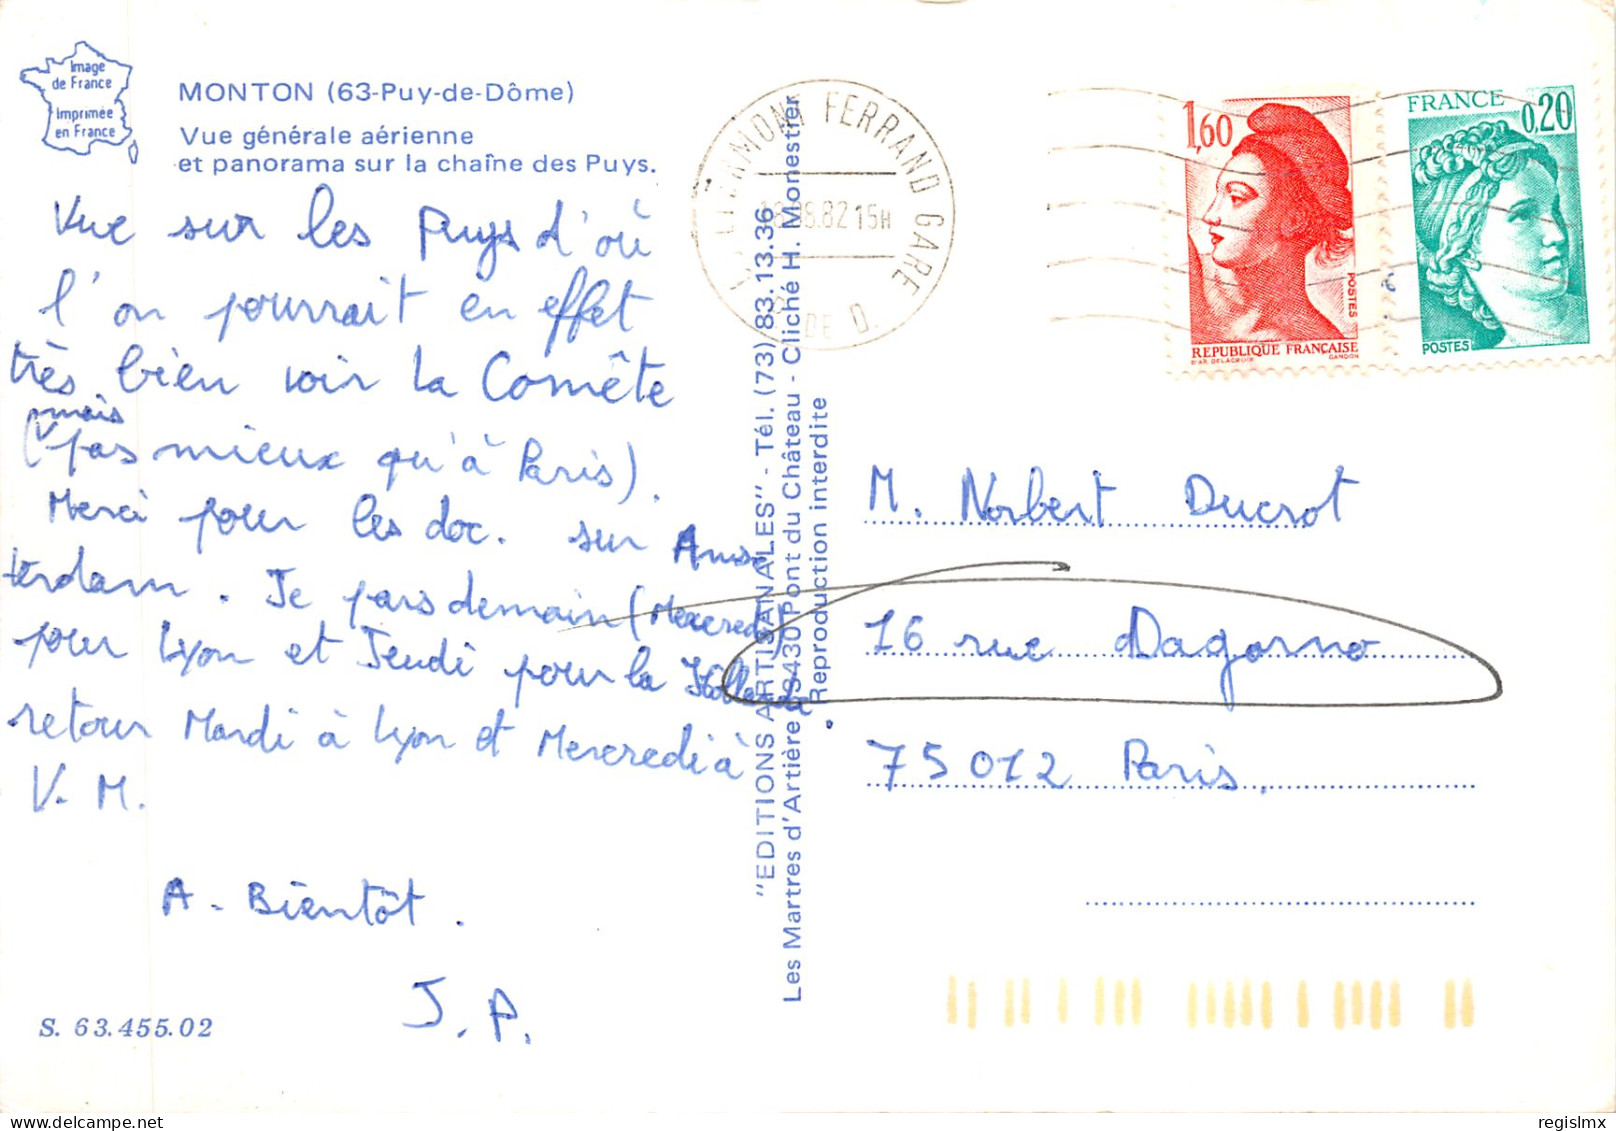 Image
de France
Imprimée
en France
MONTON (63-Puy-de-Dôme)
Vue générale aérienne
et panorama sur la chaîne des Puys.
Vue sur les Puys d'où
l'on pourrait en effet
très bien voir la Comête
mais
(pas mieux qu'à Paris).
Merci pour les doc. sur Ams-
terdam. Je pars demain (Mercredi)
pour Lyon et Jeudi pour la Hollande.
retour Mardi à Lyon et Mercredi à
V. M.
A. Bientôt.
J. P.
S. 63.455.02
"EDITIONS ARTISANALES" - Tél. (73) 83.13.36
Les Martres d'Artière 63430 Pont du Château - Cliché H. Monestier
Reproduction interdite
CLERMONT FERRAND GARE
P. DE D.
18.08.82 15H
1,60
POSTES
REPUBLIQUE FRANÇAISE
D'AP. DELACROIX GANDON
FRANCE
0,20
POSTES
M. Norbert Ducrot
16 rue Dagorno
75012 Paris.
regislmx